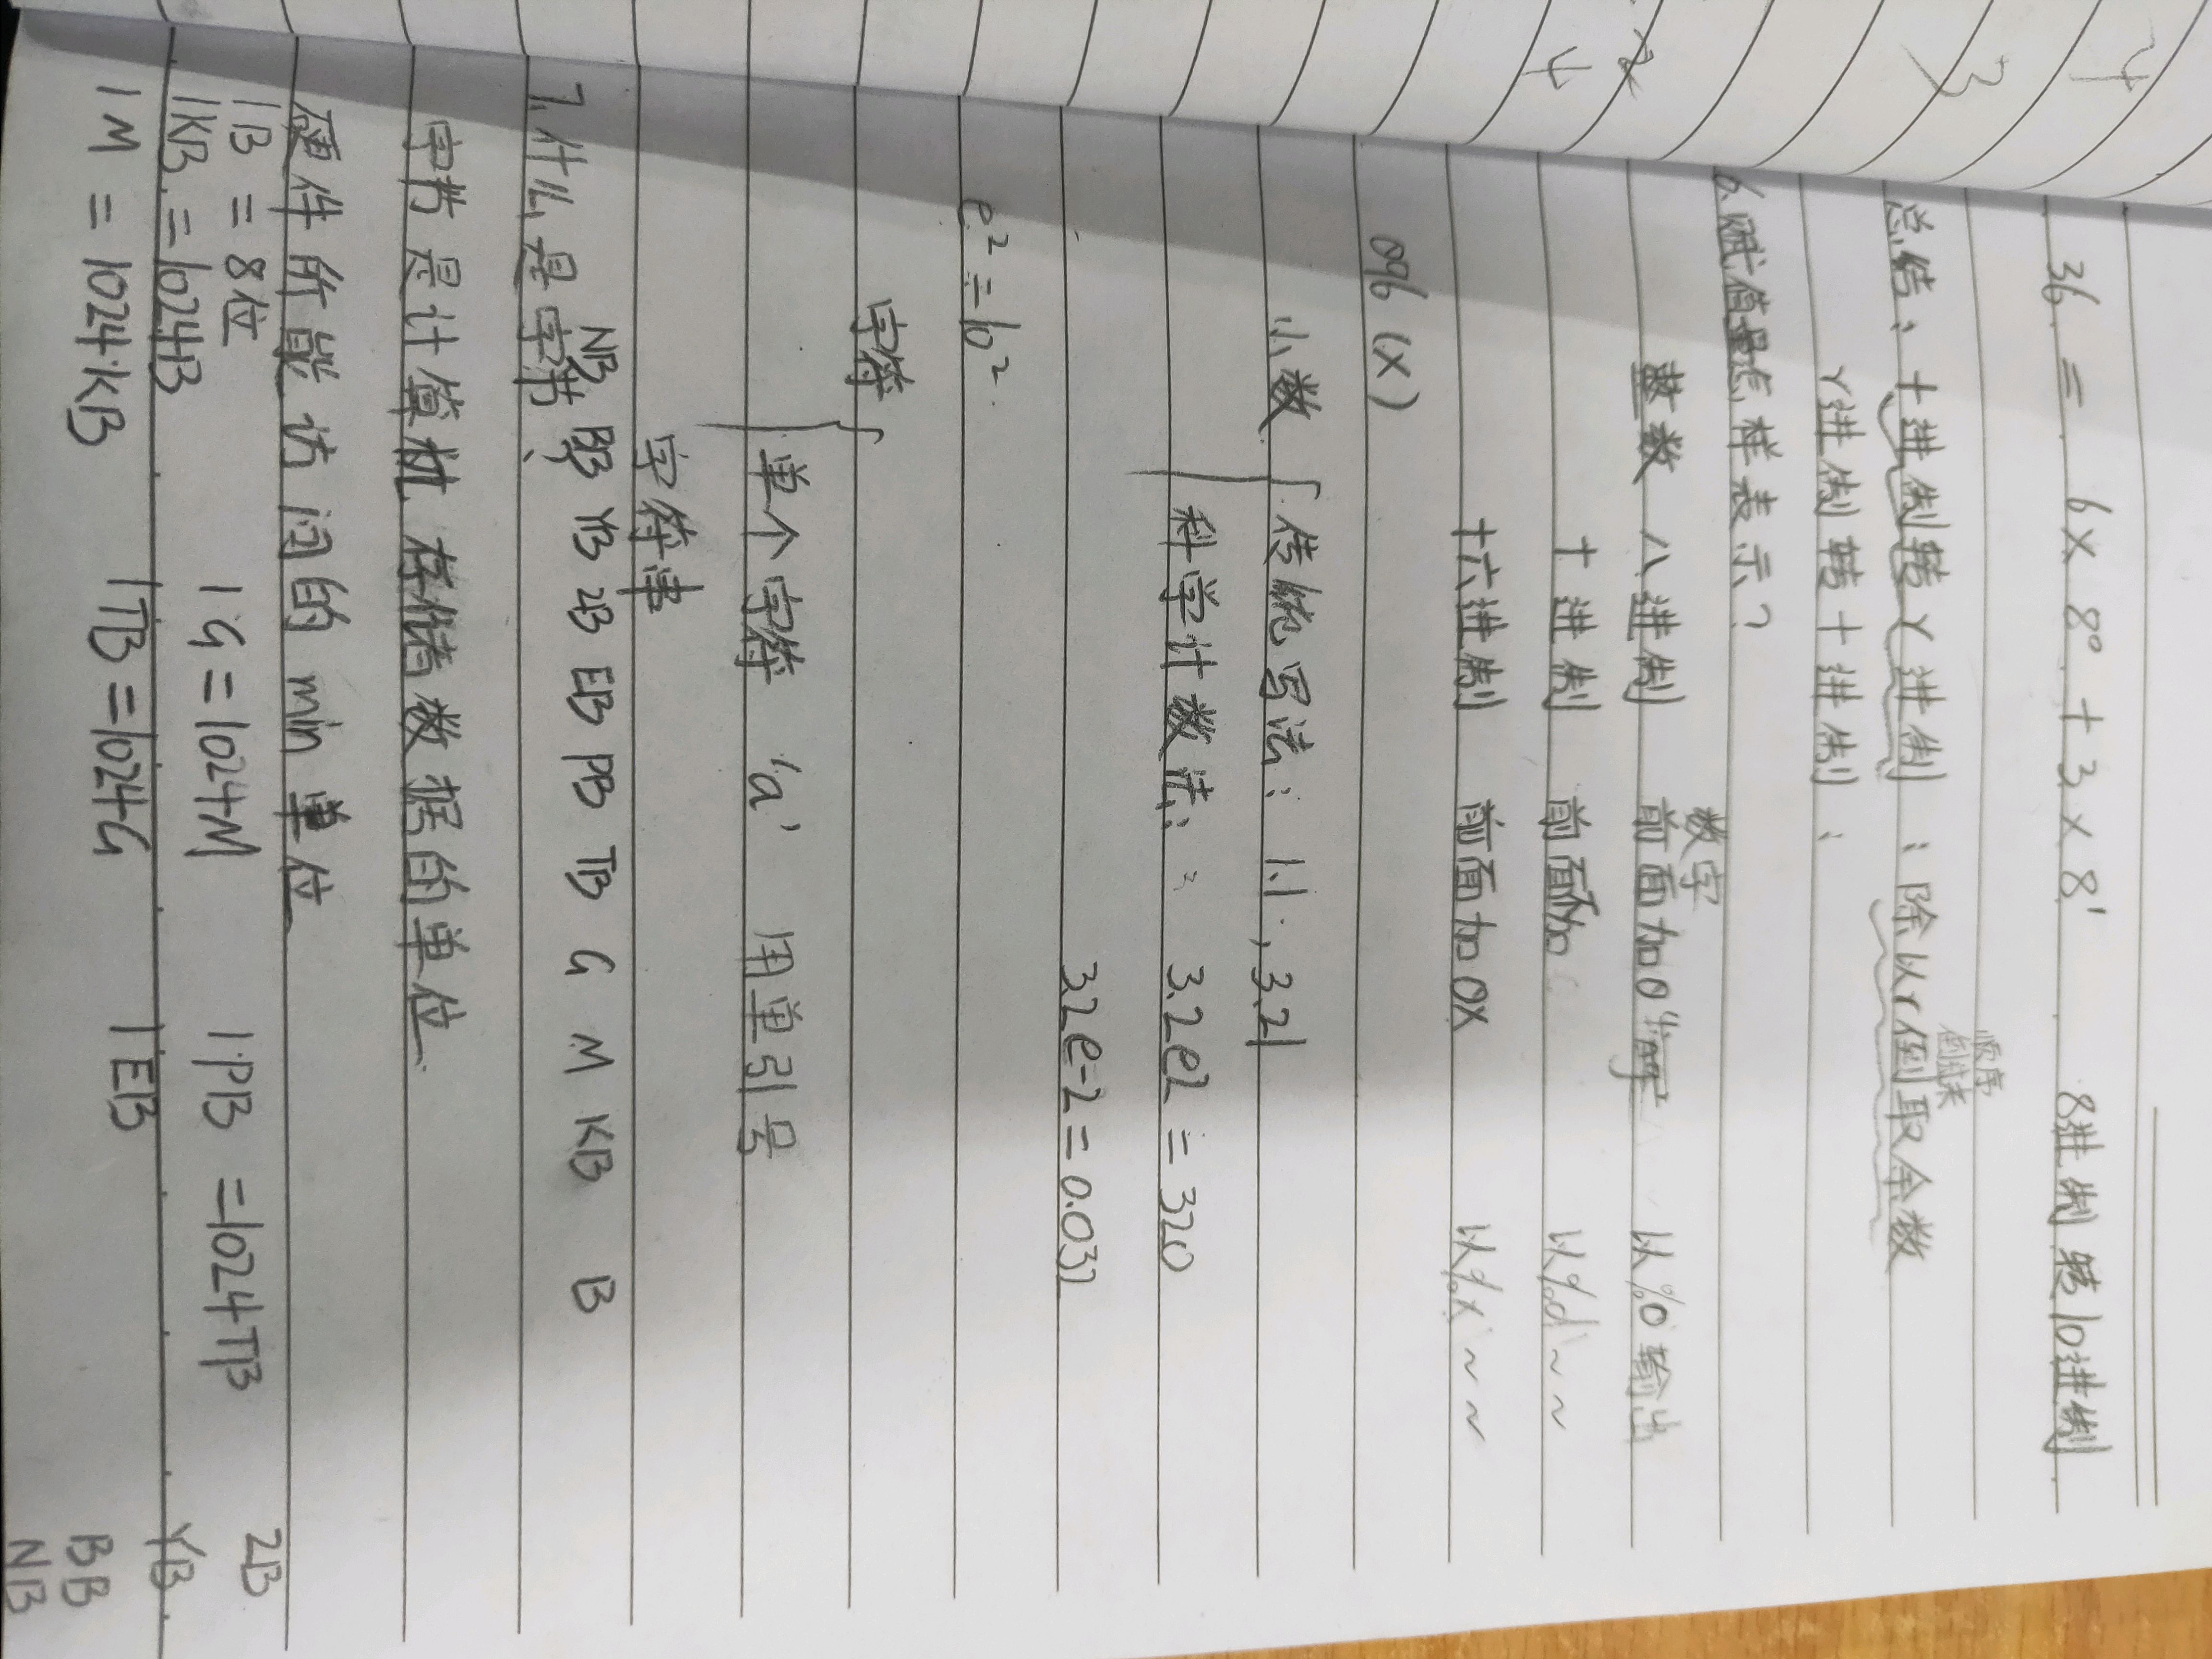 36 = 6×8⁰+3×8¹ 8进制转10进制
顺序
总结：十进制转r进制：除以r倒取余数
r进制转十进制：
6.赋值量怎样表示？
数字
整数 八进制 前面加0 以%o输出
十进制 前面加 以%d~~
十六进制 前面加0X 以%x~~
096 (X)
小数 传统写法：1.1，3.21
科学计数法： 3.2e2=320
3.2e-2=0.032
e²=10²
字符
单个字符 'a' 用单引号
字符串
NB BB YB ZB EB PB TB G M KB B
7.什么是字节、
字节是计算机存储数据的单位.
硬件所能访问的min单位
1B = 8位 1G=1024M 1PB=1024TB ZB
1KB=1024B 1TB=1024G 1EB YB
1M = 1024KB BB
NB